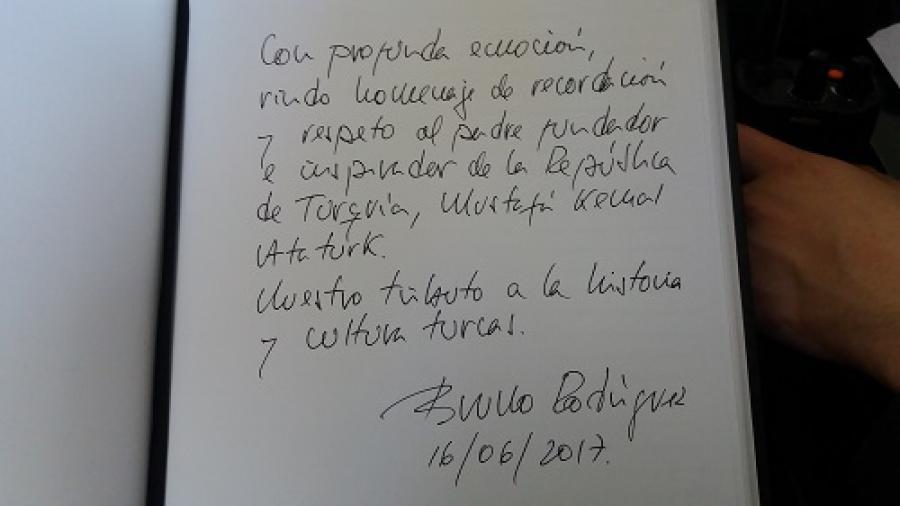 Con profunda emoción,
rindo homenaje de recordación
y respeto al padre fundador
e inspirador de la República
de Turquía, Mustafá Kemal
Ataturk.
Nuestro tributo a la historia
y cultura turcas.
Bruno Rodríguez
16/06/2017.